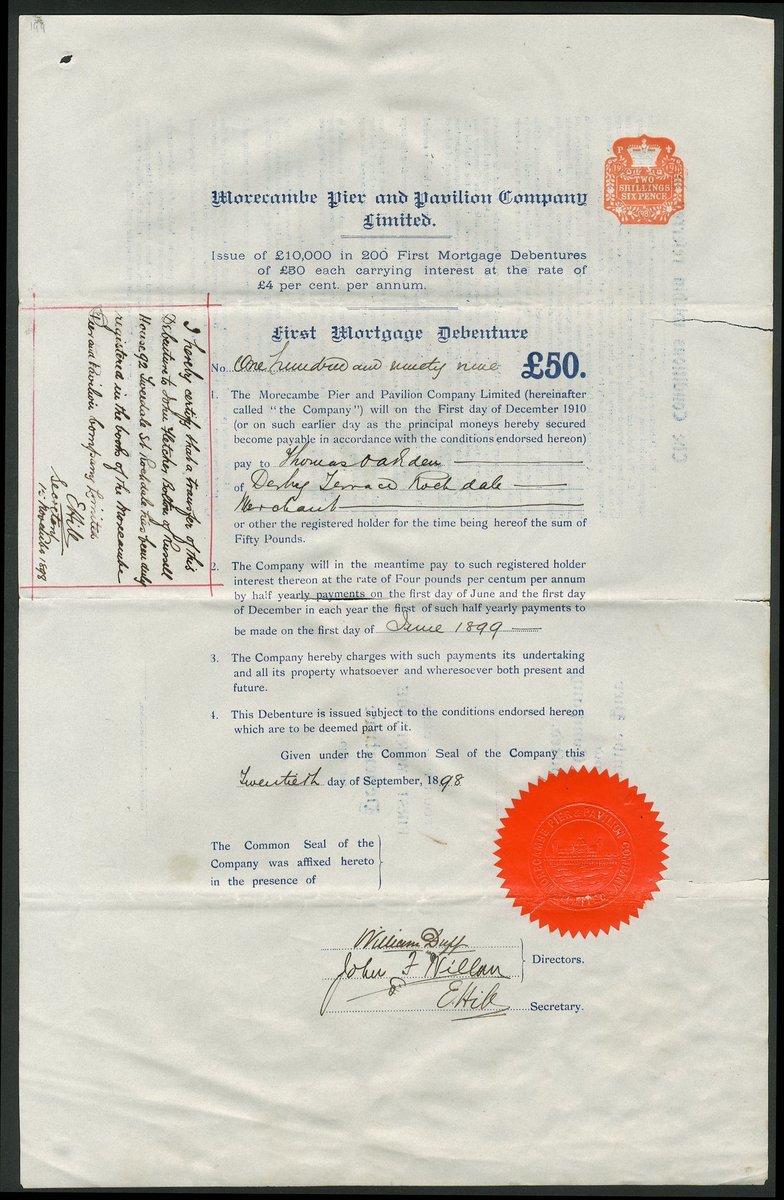 199
P
19 9
TWO
SHILLINGS
SIX PENCE
98
Morecambe Pier and Pavilion Company
Limited.
Issue of £10,000 in 200 First Mortgage Debentures
of £50 each carrying interest at the rate of
£4 per cent. per annum.
First Mortgage Debenture
No. One hundred and ninety nine £50.
1. The Morecambe Pier and Pavilion Company Limited (hereinafter
called "the Company") will on the First day of December 1910
(or on such earlier day as the principal moneys hereby secured
become payable in accordance with the conditions endorsed hereon)
pay to Thomas Oakden
of Derby Terrace Rochdale
Merchant
or other the registered holder for the time being hereof the sum of
Fifty Pounds.
2. The Company will in the meantime pay to such registered holder
interest thereon at the rate of Four pounds per centum per annum
by half yearly payments on the first day of June and the first day
of December in each year the first of such half yearly payments to
be made on the first day of June 1899
3. The Company hereby charges with such payments its undertaking
and all its property whatsoever and wheresoever both present and
future.
4. This Debenture is issued subject to the conditions endorsed hereon
which are to be deemed part of it.
Given under the Common Seal of the Company this
Twentieth day of September, 1898
The Common Seal of the
Company was affixed hereto
in the presence of
MORECAMBE PIER & PAVILION COMPANY
William Duff
John F Willan
Directors.
E Hill
Secretary.
I hereby certify that a transfer of this
Debenture to John Fletcher Bolton of Russell
House 92 Tweedale St Rochdale has been duly
registered in the books of the Morecambe
Pier and Pavilion Company Limited
E Hill
Secretary
1898